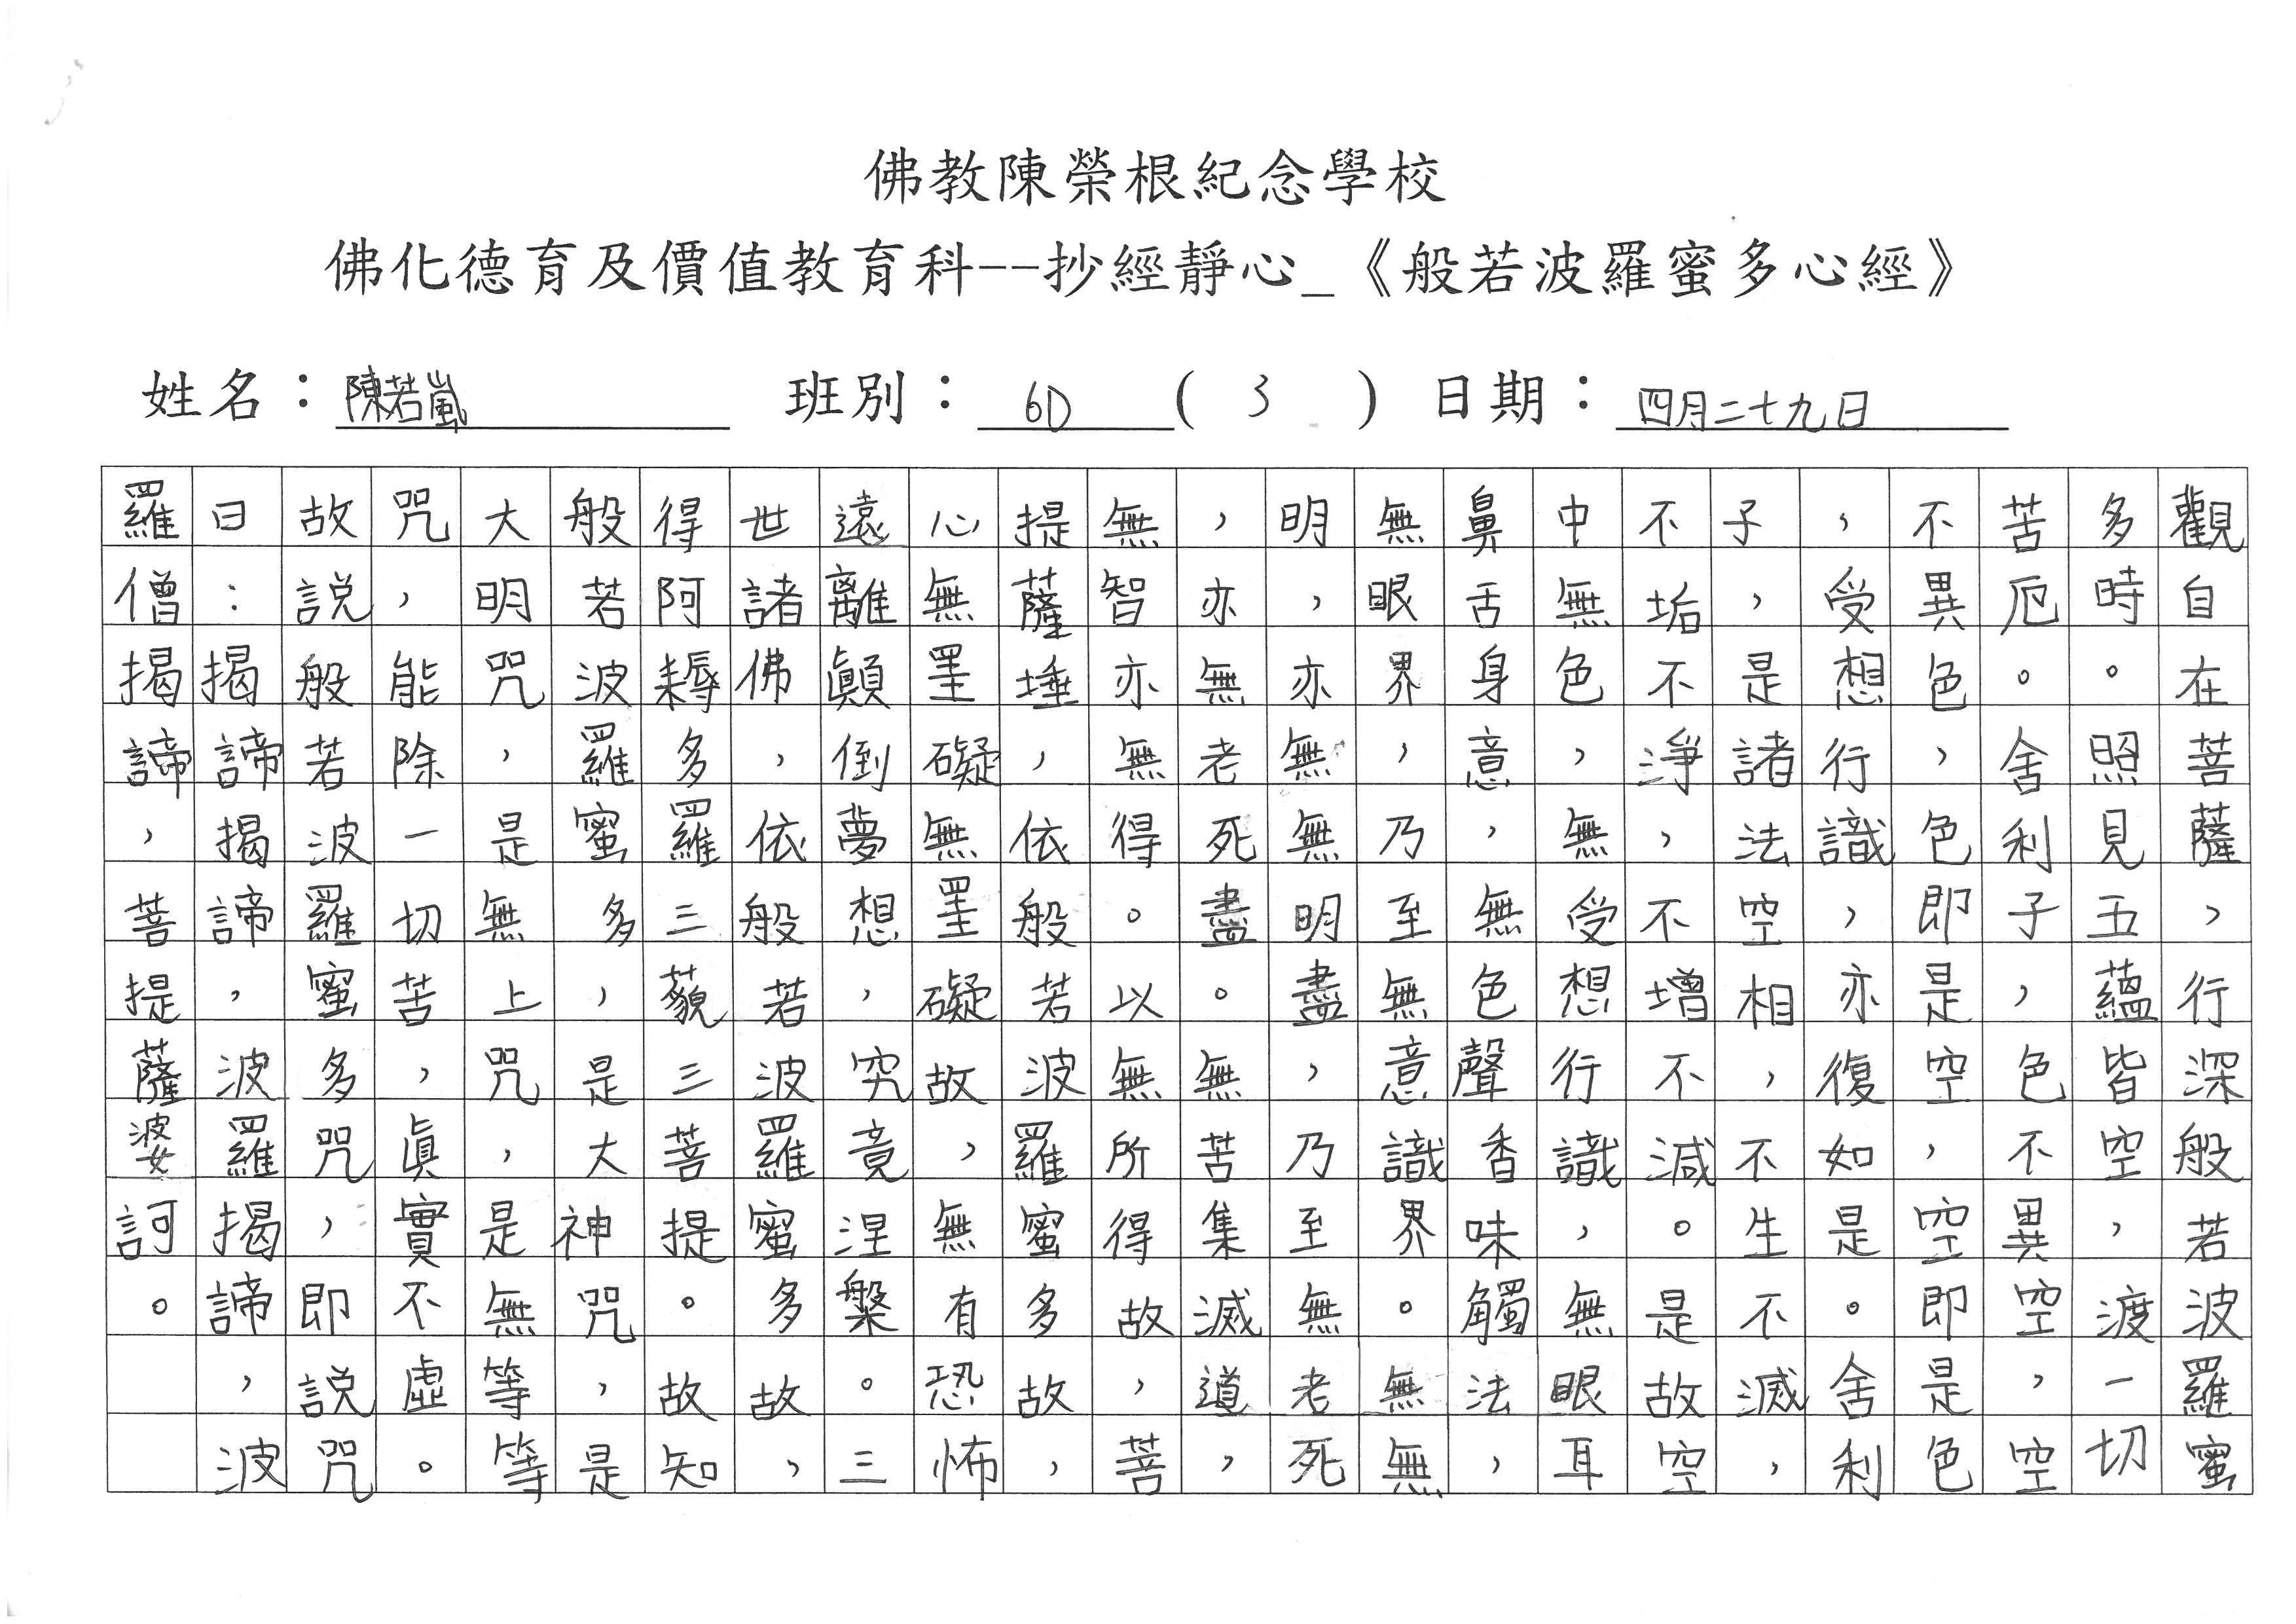 佛教陳榮根紀念學校
佛化德育及價值教育科--抄經靜心_《般若波羅蜜多心經》
姓名：陳若嵐 班別：6D ( 3 ) 日期：四月二十九日
觀自在菩薩，行深般若波羅蜜
多時。照見五蘊皆空，渡一切
苦厄。舍利子，色不異空，空
不異色，色即是空，空即是色
，受想行識，亦復如是。舍利
子，是諸法空相，不生不滅，
不垢不淨，不增不減。是故空
中無色，無受想行識，無眼耳
鼻舌身意，無色聲香味觸法，
無眼界，乃至無意識界。無無
明，亦無無明盡，乃至無老死
，亦無老死盡。無苦集滅道，
無智亦無得。以無所得故，菩
提薩埵，依般若波羅蜜多故，
心無罣礙無罣礙故，無有恐怖
遠離顛倒夢想，究竟涅槃。三
世諸佛，依般若波羅蜜多故，
得阿耨多羅三藐三菩提。故知
般若波羅蜜多，是大神咒，是
大明咒，是無上咒，是無等等
咒，能除一切苦，眞實不虛。
故説般若波羅蜜多咒，即説咒
曰：揭諦揭諦，波羅揭諦，波
羅僧揭諦，菩提薩婆訶。